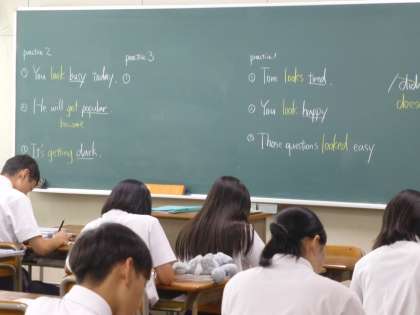 practice 2
① You look busy today.
② He will get popular
become
③ It's getting dark.
practice 3
①
practice 1
① Tom looks tired.
② You look happy
③ Those questions looked easy